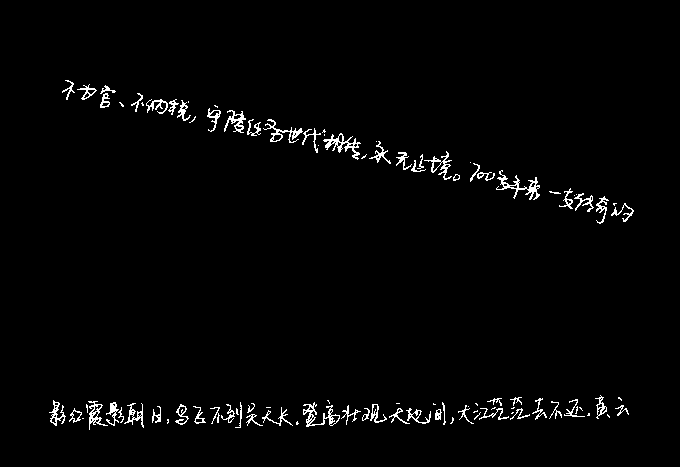 不为官、不纳税，守陵任务世代相传，永无止境。700多年来一支传奇的
影红霞影朝日，鸟飞不到吴天长．登高壮观天地间，大江茫茫去不还．黄云